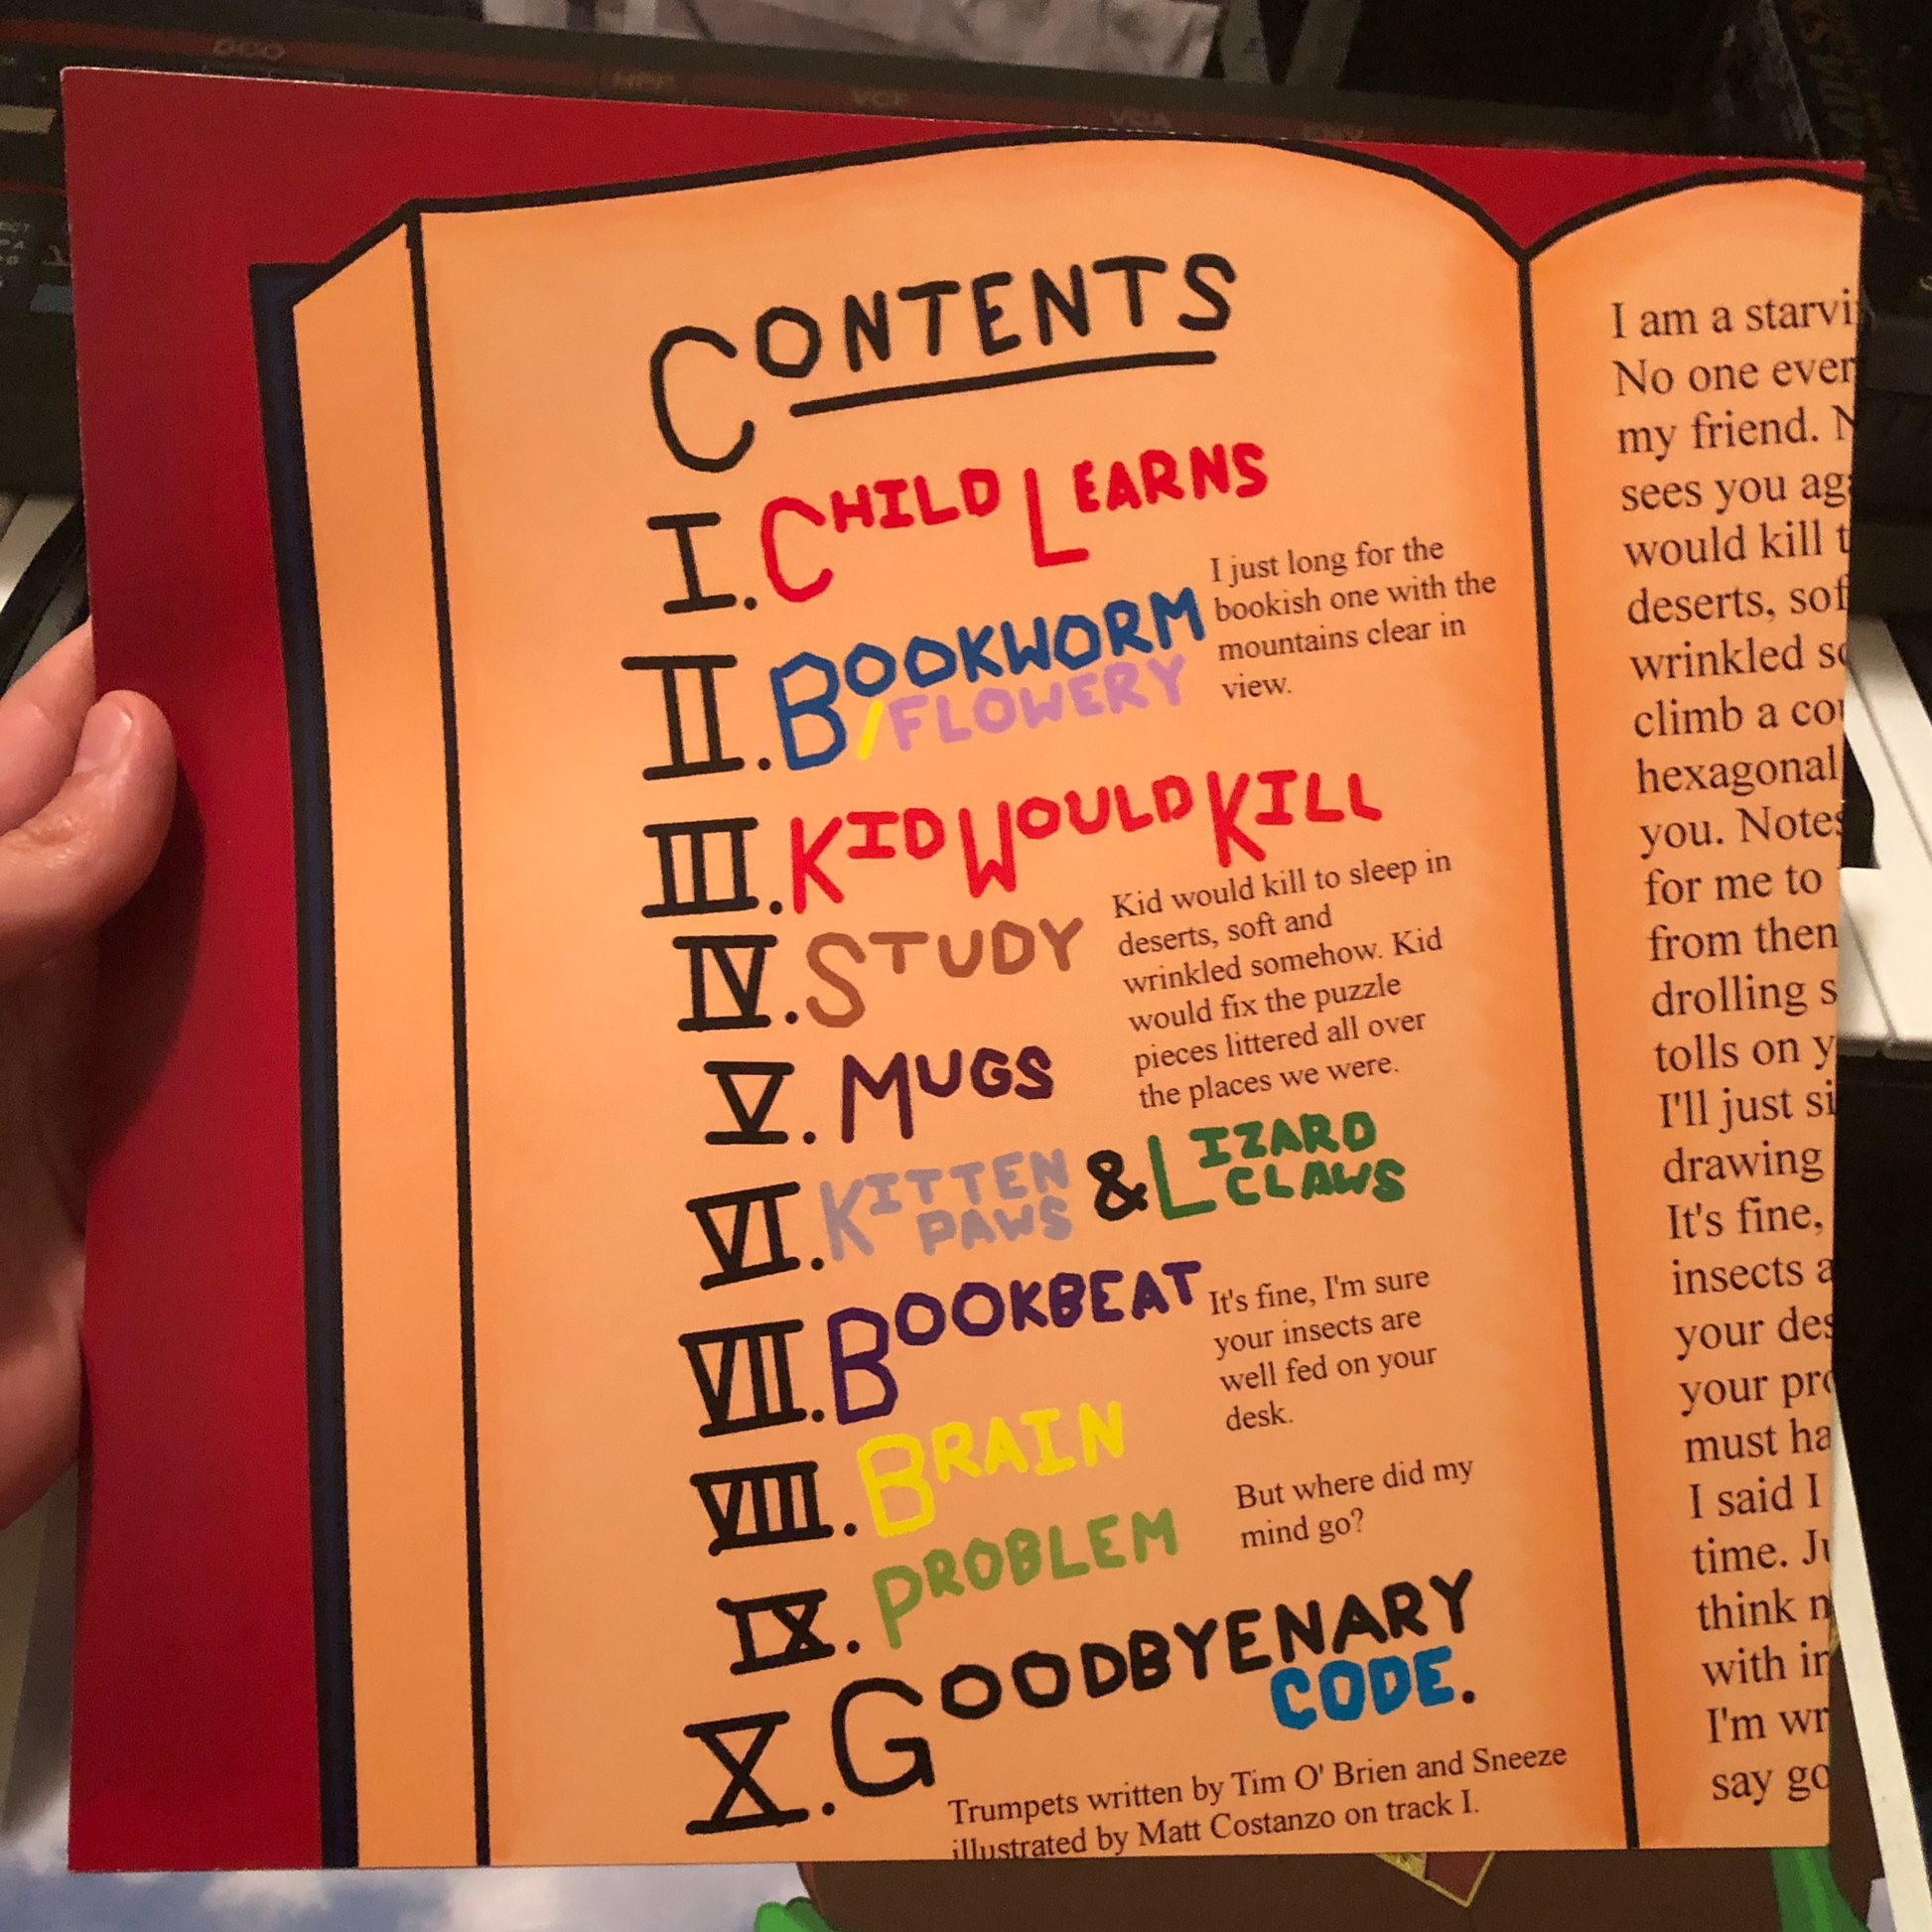 DCO
VCF
VCA
ENV
CONTENTS
I. CHILD LEARNS
II. BOOKWORM
/FLOWERY
I just long for the
bookish one with the
mountains clear in
view.
III. KID WOULD KILL
IV. STUDY
Kid would kill to sleep in
deserts, soft and
wrinkled somehow. Kid
would fix the puzzle
pieces littered all over
the places we were.
V. MUGS
VI. KITTEN PAWS & LIZARD CLAWS
VII. BOOKBEAT
It's fine, I'm sure
your insects are
well fed on your
desk.
VIII. BRAIN
But where did my
mind go?
IX. PROBLEM
X. GOODBYENARY
CODE.
Trumpets written by Tim O' Brien and Sneeze
illustrated by Matt Costanzo on track I.
I am a starvi
No one ever
my friend. N
sees you ag
would kill t
deserts, sof
wrinkled so
climb a co
hexagonal
you. Notes
for me to
from then
drolling s
tolls on y
I'll just si
drawing
It's fine,
insects a
your des
your pro
must ha
I said I
time. Ju
think n
with in
I'm wr
say go